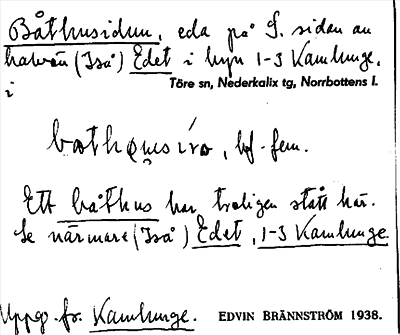 Båthusidun, eda på S. sidan av
halvön (Iså) Edet i byn 1-3 Kamlunge,
Töre sn, Nederkalix tg, Norrbottens l.
i
bf. fem.
Ett båthus har troligen stått här.
Se närmare (Iså) Edet, 1-3 Kamlunge
Uppg. fr. Kamlunge. EDVIN BRÄNNSTRÖM 1938.